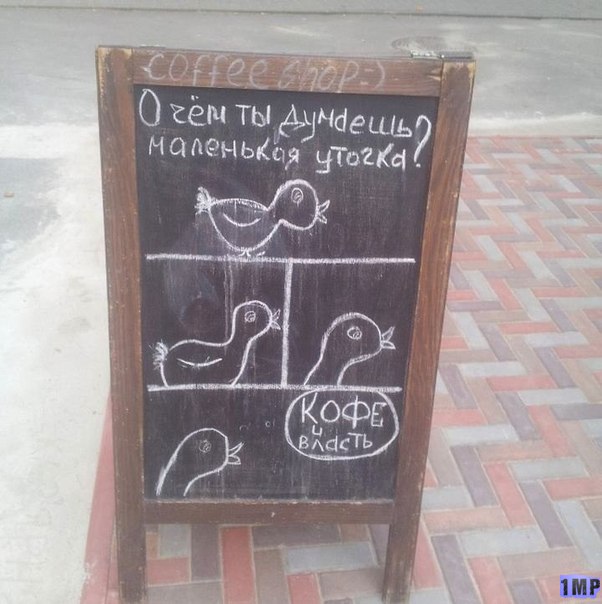 coffee shop=)
О чём ты думаешь?
маленькая уточка?
КОФЕ
и
власть
1MP